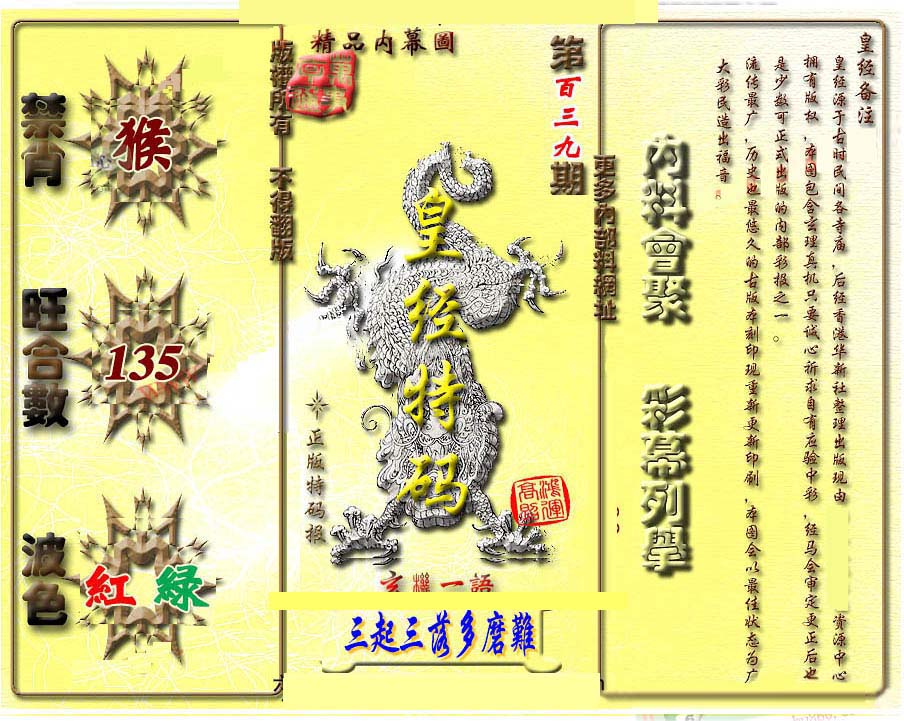 精品内幕圖
版權所有 不得翻版
禁肖
猴
旺合數
135
波色
紅 綠
皇经特码
正版特码报
鴻運高照
玄機一語
三起三落多磨難
第百三九期
更多内部料網址
内料會聚
彩幕列學
皇经备注
皇经源于古时民间各寺庙,后经香港华新社整理出版现由 资源中心
拥有版权,本图包含玄理真机只要诚心祈求自有应验中彩,经马会审定更正后也
是少数可正式出版的内部彩报之一。
流传最广,历史也最悠久的古版本刻印现重新更新印刷,本图会以最佳状态为广
大彩民造出福音